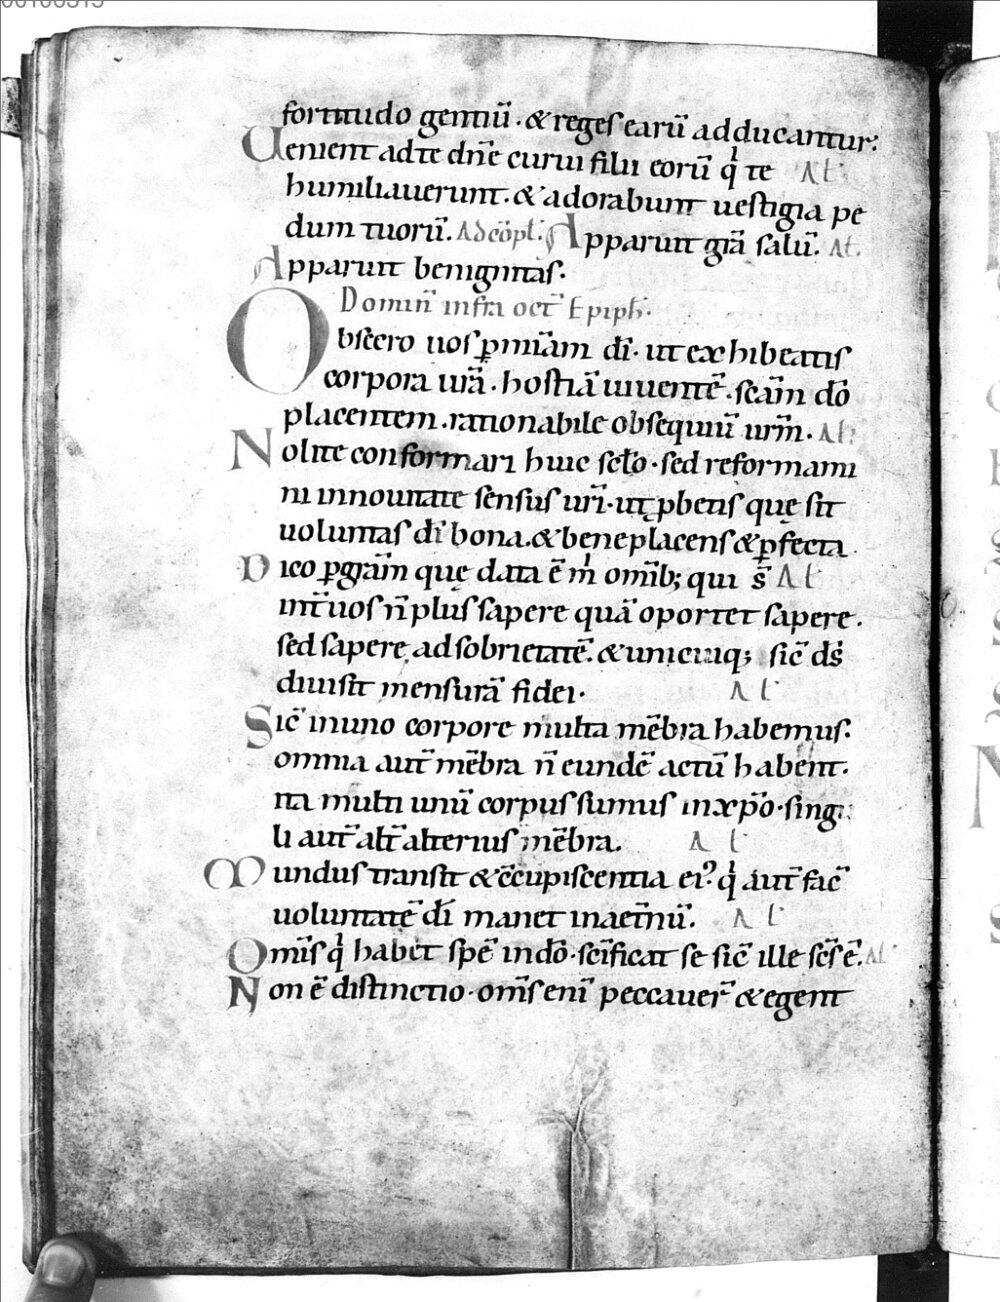 fortitudo gentiū. & reges earū adducantur:
Uenient ad te dn̄e curui filii eorū qͥ te Al̄
humiliauerunt. & adorabunt uestigia pe
dum tuorū. Ad cōpl̄. Apparuit grā̄ salū. Al̄.
Apparuit benignitas.
Domiñ infra oct̄ Epiph̄.
Obsecro uos ꝑ miām dī. ut exhibeatis
corpora urā. hostiā uiuentē. scām dō
placentem. rationabile obsequiū urm̄. Al̄:
Nolite conformari huic sclō. sed reformami
ni innouitate sensus urī. ut ꝓbetis que sit
uoluntas dī bona. & beneplacens & ꝑfecta.
Dico ꝑ grām quę data ē m̍ omīb; qui s̄ Al̄
int̄ uos n̄ plus sapere quā oportet sapere.
sed sapere ad sobrietatē. & unicuiq; sic̄ ds̄
diuisit mensurā fidei. Al̄
Sic̄ in uno corpore multa mēbra habemus.
omnia aut̄ mēbra n̄ eundē actū habent.
ita multi unū corpus sumus in xp̄o. singu
li aut̄ alt̄ alterius mēbra. Al̄
Mundus transit & ccupiscentia ei᾽. qͥ aut̄ fac̄
uoluntatē dī manet in aet̄nū. Al̄
Omīs qͥ habet spē in dō. scīficat se sic̄ ille scs̄ ē. Al̄
Non ē distinctio. oms̄ enī peccauer̄ & egent